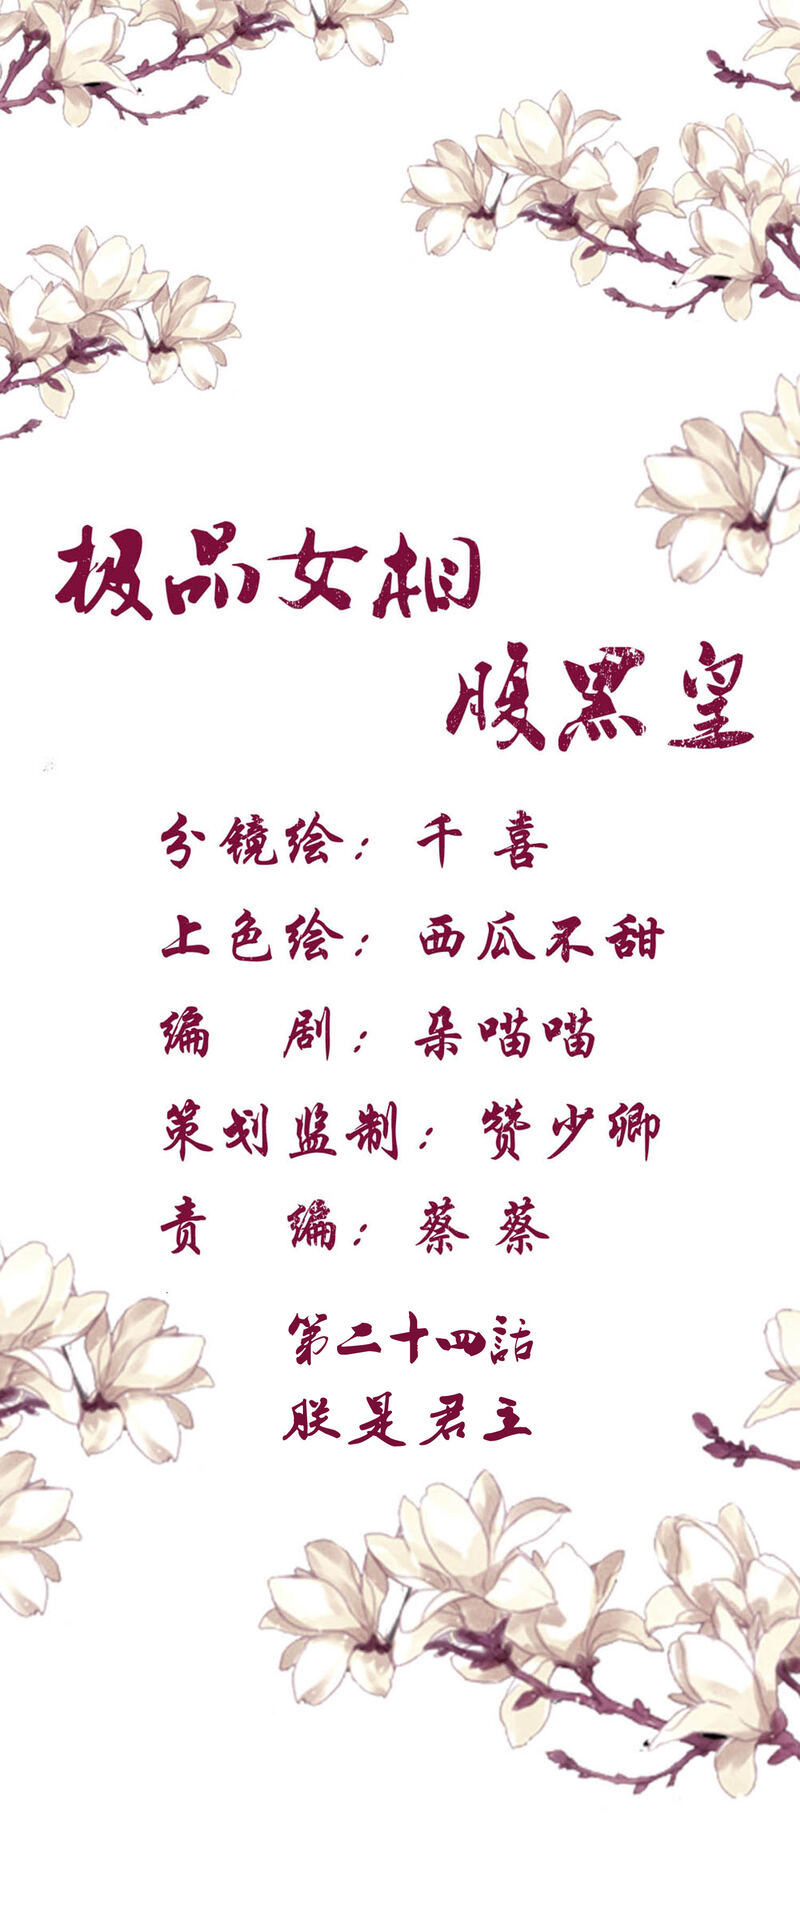 极品女相
腹黑皇
分镜绘：千喜
上色绘：西瓜不甜
编 剧：朵喵喵
策划监制：赞少卿
责 编：蔡蔡
第二十四話
朕是君主